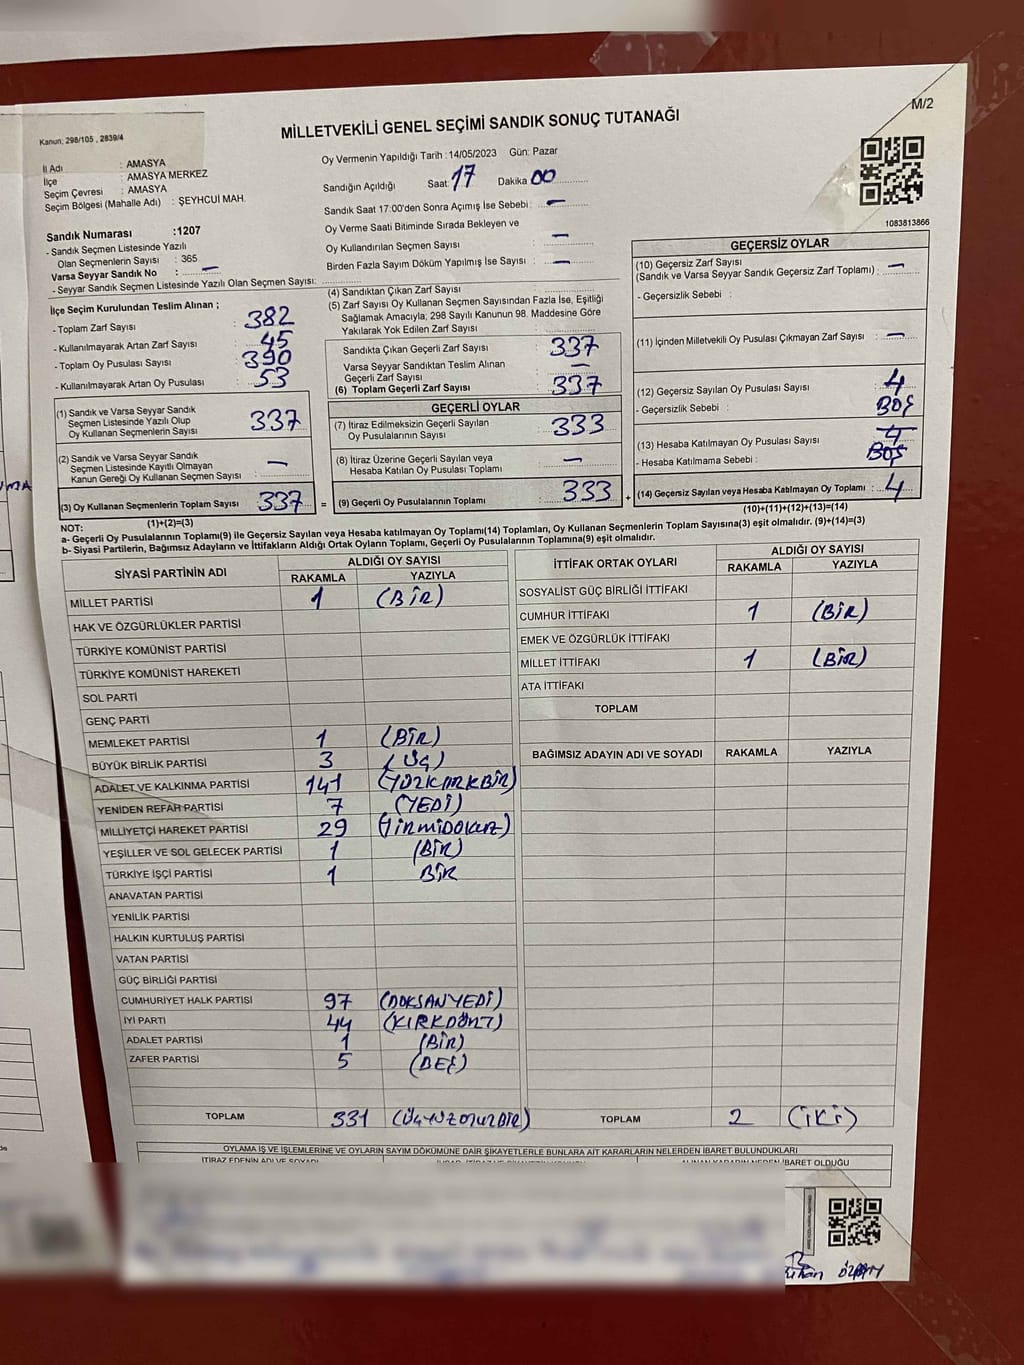 M/2
Kanun: 298/105 , 2839/4
MİLLETVEKİLİ GENEL SEÇİMİ SANDIK SONUÇ TUTANAĞI
İl Adı : AMASYA
İlçe : AMASYA MERKEZ
Seçim Çevresi : AMASYA
Seçim Bölgesi (Mahalle Adı) : ŞEYHCUİ MAH.
Sandık Numarası :1207
- Sandık Seçmen Listesinde Yazılı
Olan Seçmenlerin Sayısı : 365
Varsa Seyyar Sandık No : —
- Seyyar Sandık Seçmen Listesinde Yazılı Olan Seçmen Sayısı:
Oy Vermenin Yapıldığı Tarih : 14/05/2023 Gün: Pazar
Sandığın Açıldığı Saat: 17 Dakika 00
Sandık Saat 17:00'den Sonra Açımış İse Sebebi : —
Oy Verme Saati Bitiminde Sırada Bekleyen ve
Oy Kullandırılan Seçmen Sayısı : —
Birden Fazla Sayım Döküm Yapılmış İse Sayısı : —
1083813866
İlçe Seçim Kurulundan Teslim Alınan ;
- Toplam Zarf Sayısı : 382
- Kullanılmayarak Artan Zarf Sayısı : 45
- Toplam Oy Pusulası Sayısı : 390
- Kullanılmayarak Artan Oy Pusulası : 53
(1) Sandık ve Varsa Seyyar Sandık
Seçmen Listesinde Yazılı Olup
Oy Kullanan Seçmenlerin Sayısı : 337
(2) Sandık ve Varsa Seyyar Sandık
Seçmen Listesinde Kayıtlı Olmayan
Kanun Gereği Oy Kullanan Seçmen Sayısı : —
(3) Oy Kullanan Seçmenlerin Toplam Sayısı : 337 =
(1)+(2)=(3)
(4) Sandıktan Çıkan Zarf Sayısı :
(5) Zarf Sayısı Oy Kullanan Seçmen Sayısından Fazla İse, Eşitliği
Sağlamak Amacıyla; 298 Sayılı Kanunun 98. Maddesine Göre
Yakılarak Yok Edilen Zarf Sayısı :
Sandıkta Çıkan Geçerli Zarf Sayısı : 337
Varsa Seyyar Sandıktan Teslim Alınan
Geçerli Zarf Sayısı : —
(6) Toplam Geçerli Zarf Sayısı : 337
GEÇERLİ OYLAR
(7) İtiraz Edilmeksizin Geçerli Sayılan
Oy Pusulalarının Sayısı : 333
(8) İtiraz Üzerine Geçerli Sayılan veya
Hesaba Katılan Oy Pusulası Toplamı : —
(9) Geçerli Oy Pusulalarının Toplamı : 333 +
GEÇERSİZ OYLAR
(10) Geçersiz Zarf Sayısı
(Sandık ve Varsa Seyyar Sandık Geçersiz Zarf Toplamı) : —
- Geçersizlik Sebebi :
(11) İçinden Milletvekili Oy Pusulası Çıkmayan Zarf Sayısı : —
(12) Geçersiz Sayılan Oy Pusulası Sayısı : 4
- Geçersizlik Sebebi : BOŞ
(13) Hesaba Katılmayan Oy Pusulası Sayısı : 4
- Hesaba Katılmama Sebebi : BOŞ
(14) Geçersiz Sayılan veya Hesaba Katılmayan Oy Toplamı : 4
(10)+(11)+(12)+(13)=(14)
NOT:
a- Geçerli Oy Pusulalarının Toplamı(9) ile Geçersiz Sayılan veya Hesaba katılmayan Oy Toplamı(14) Toplamları, Oy Kullanan Seçmenlerin Toplam Sayısına(3) eşit olmalıdır. (9)+(14)=(3)
b- Siyasi Partilerin, Bağımsız Adayların ve İttifakların Aldığı Ortak Oyların Toplamı, Geçerli Oy Pusulalarının Toplamına(9) eşit olmalıdır.
SİYASİ PARTİNİN ADI ALDIĞI OY SAYISI
RAKAMLA YAZIYLA
MİLLET PARTİSİ 1 (BİR)
HAK VE ÖZGÜRLÜKLER PARTİSİ
TÜRKİYE KOMÜNİST PARTİSİ
TÜRKİYE KOMÜNİST HAREKETİ
SOL PARTİ
GENÇ PARTİ
MEMLEKET PARTİSİ 1 (BİR)
BÜYÜK BİRLİK PARTİSİ 3 (ÜÇ)
ADALET VE KALKINMA PARTİSİ 141 (YÜZKIRKBİR)
YENİDEN REFAH PARTİSİ 7 (YEDİ)
MİLLİYETÇİ HAREKET PARTİSİ 29 (YİRMİDOKUZ)
YEŞİLLER VE SOL GELECEK PARTİSİ 1 (BİR)
TÜRKİYE İŞÇİ PARTİSİ 1 BİR
ANAVATAN PARTİSİ
YENİLİK PARTİSİ
HALKIN KURTULUŞ PARTİSİ
VATAN PARTİSİ
GÜÇ BİRLİĞİ PARTİSİ
CUMHURİYET HALK PARTİSİ 97 (DOKSANYEDİ)
İYİ PARTİ 44 (KIRKDÖRT)
ADALET PARTİSİ 1 (BİR)
ZAFER PARTİSİ 5 (BEŞ)
TOPLAM 331 (ÜÇYÜZOTUZBİR)
İTTİFAK ORTAK OYLARI ALDIĞI OY SAYISI
RAKAMLA YAZIYLA
SOSYALİST GÜÇ BİRLİĞİ İTTİFAKI
CUMHUR İTTİFAKI 1 (BİR)
EMEK VE ÖZGÜRLÜK İTTİFAKI
MİLLET İTTİFAKI 1 (BİR)
ATA İTTİFAKI
TOPLAM
BAĞIMSIZ ADAYIN ADI VE SOYADI RAKAMLA YAZIYLA
TOPLAM 2 (İKİ)
OYLAMA İŞ VE İŞLEMLERİNE VE OYLARIN SAYIM DÖKÜMÜNE DAİR ŞİKAYETLERLE BUNLARA AİT KARARLARIN NELERDEN İBARET BULUNDUKLARI
İTİRAZ EDENİN ADI VE SOYADI ALINAN KARARIN NEDEN İBARET OLDUĞU